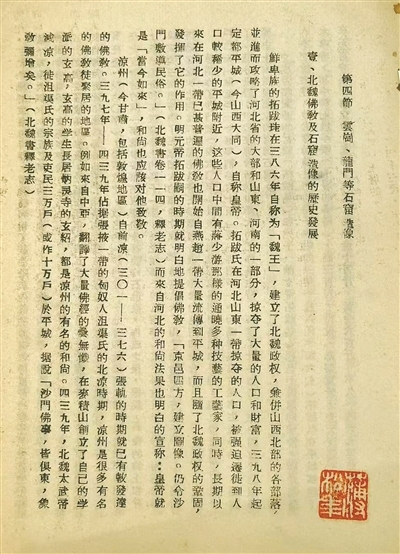 第四節　雲崗、龍門等石窟造像
壹、北魏佛敎及石窟造像的歷史發展
鮮卑族的拓跋珪在三八六年自称为「魏王」，建立了北魏政權，並併山西北部的各部落，
並進而攻略了河北省的大部和山東、河南的一部分，掠夺了大量的人口和財富，三九八年起
定都平城（今山西大同），自称皇帝。拓跋氏在河北山東一带掠夺的人口，被强迫遷徙到人
口較稀少的平城附近，这些人口中間有蔣少游那樣的通曉多种技藝的工藝家，同時，長期以
來在河北一带已甚普遍的佛敎也開始自燕趙一带大量流傳到平城，而且爲了北魏政权的鞏固
發揮了它的作用。明元帝拓跋嗣的時期就明白地提倡佛敎，「京邑四方，建立圖像。仍令沙
門敷導民俗。」（北魏書卷一一四，釋老志）而來自河北的和尚法果也明白的宣称：皇帝就
是「當今如來」，和尚也应該对他致敬。
涼州（今甘肅，包括敦煌地區）自前凉（三〇一——三七六）張軌的時期就已有較發達
的佛敎。三九七年——四三九年佔据張掖一带的匈奴人沮渠氏的北凉時期，凉州是很多有名
的佛敎徒聚居的地區。例如來自中亞，翻譯了大量佛經的曇無懺，在麥積山創立了自己的学
派的玄高，玄高的学生長居炳灵寺的玄紹，都是凉州的有名的和尚。四三九年，北魏太武帝
滅凉，徙沮渠氏的宗族及吏民三万戶（或作十万戶）於平城，据說「沙門佛事，皆俱東，象
敎彌增矣。」（北魏書釋老志）